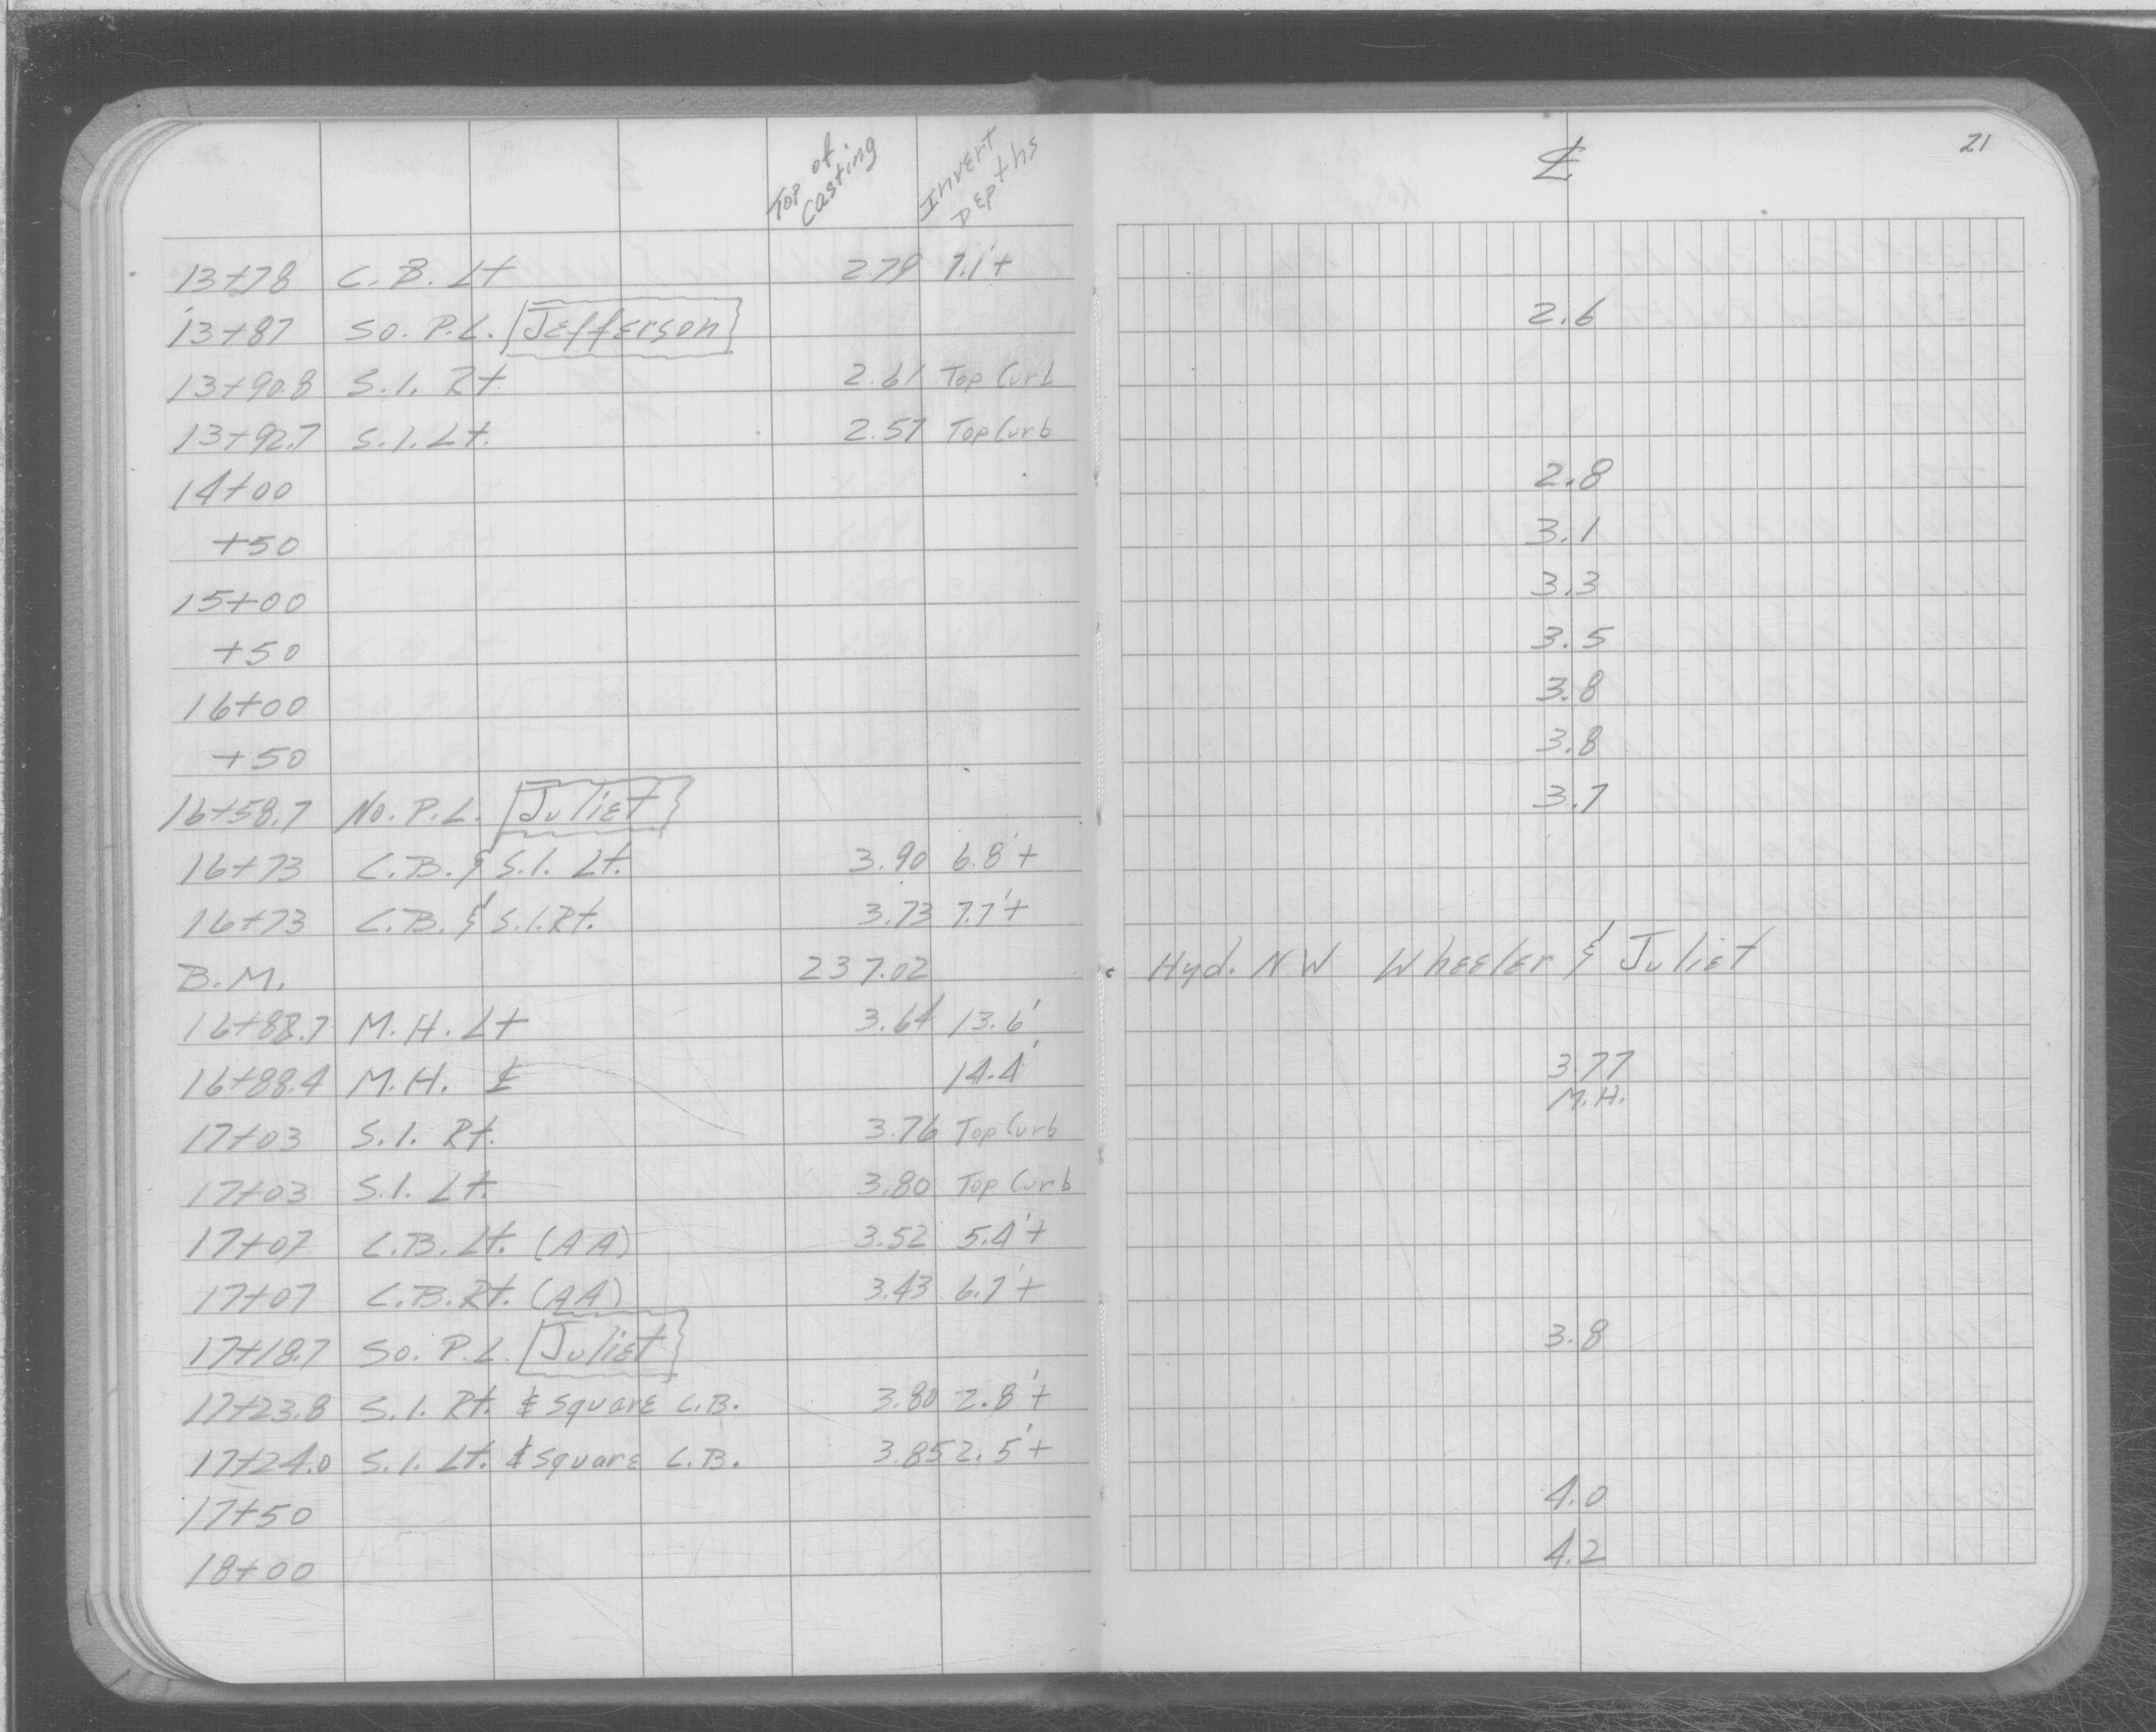 Top of Casting Invert Depths ℄ 21
13+78 C.B. Lt 2.79 7.1'+
13+87 So. P.L. Jefferson 2.6
13+90.8 S.I. Rt. 2.61 Top Curb
13+92.7 S.I. Lt. 2.57 Top Curb
14+00 2.8
+50 3.1
15+00 3.3
+50 3.5
16+00 3.8
+50 3.8
16+58.7 No. P.L. Juliet 3.7
16+73 C.B. & S.I. Lt. 3.90 6.8'+
16+73 C.B. & S.I. Rt. 3.73 7.7'+
B.M. 237.02 Hyd. NW Wheeler & Juliet
16+88.7 M.H. Lt 3.64 13.6'
16+88.4 M.H. ℄ 14.4' 3.77
M.H.
17+03 S.I. Rt. 3.76 Top Curb
17+03 S.I. Lt. 3.80 Top Curb
17+07 C.B. Lt. (AA) 3.52 5.4'+
17+07 C.B. Rt. (AA) 3.43 6.7'+
17+18.7 So. P.L. Juliet 3.8
17+23.8 S.I. Rt. & Square C.B. 3.80 2.8'+
17+24.0 S.I. Lt. & Square C.B. 3.85 2.5'+
17+50 4.0
18+00 4.2